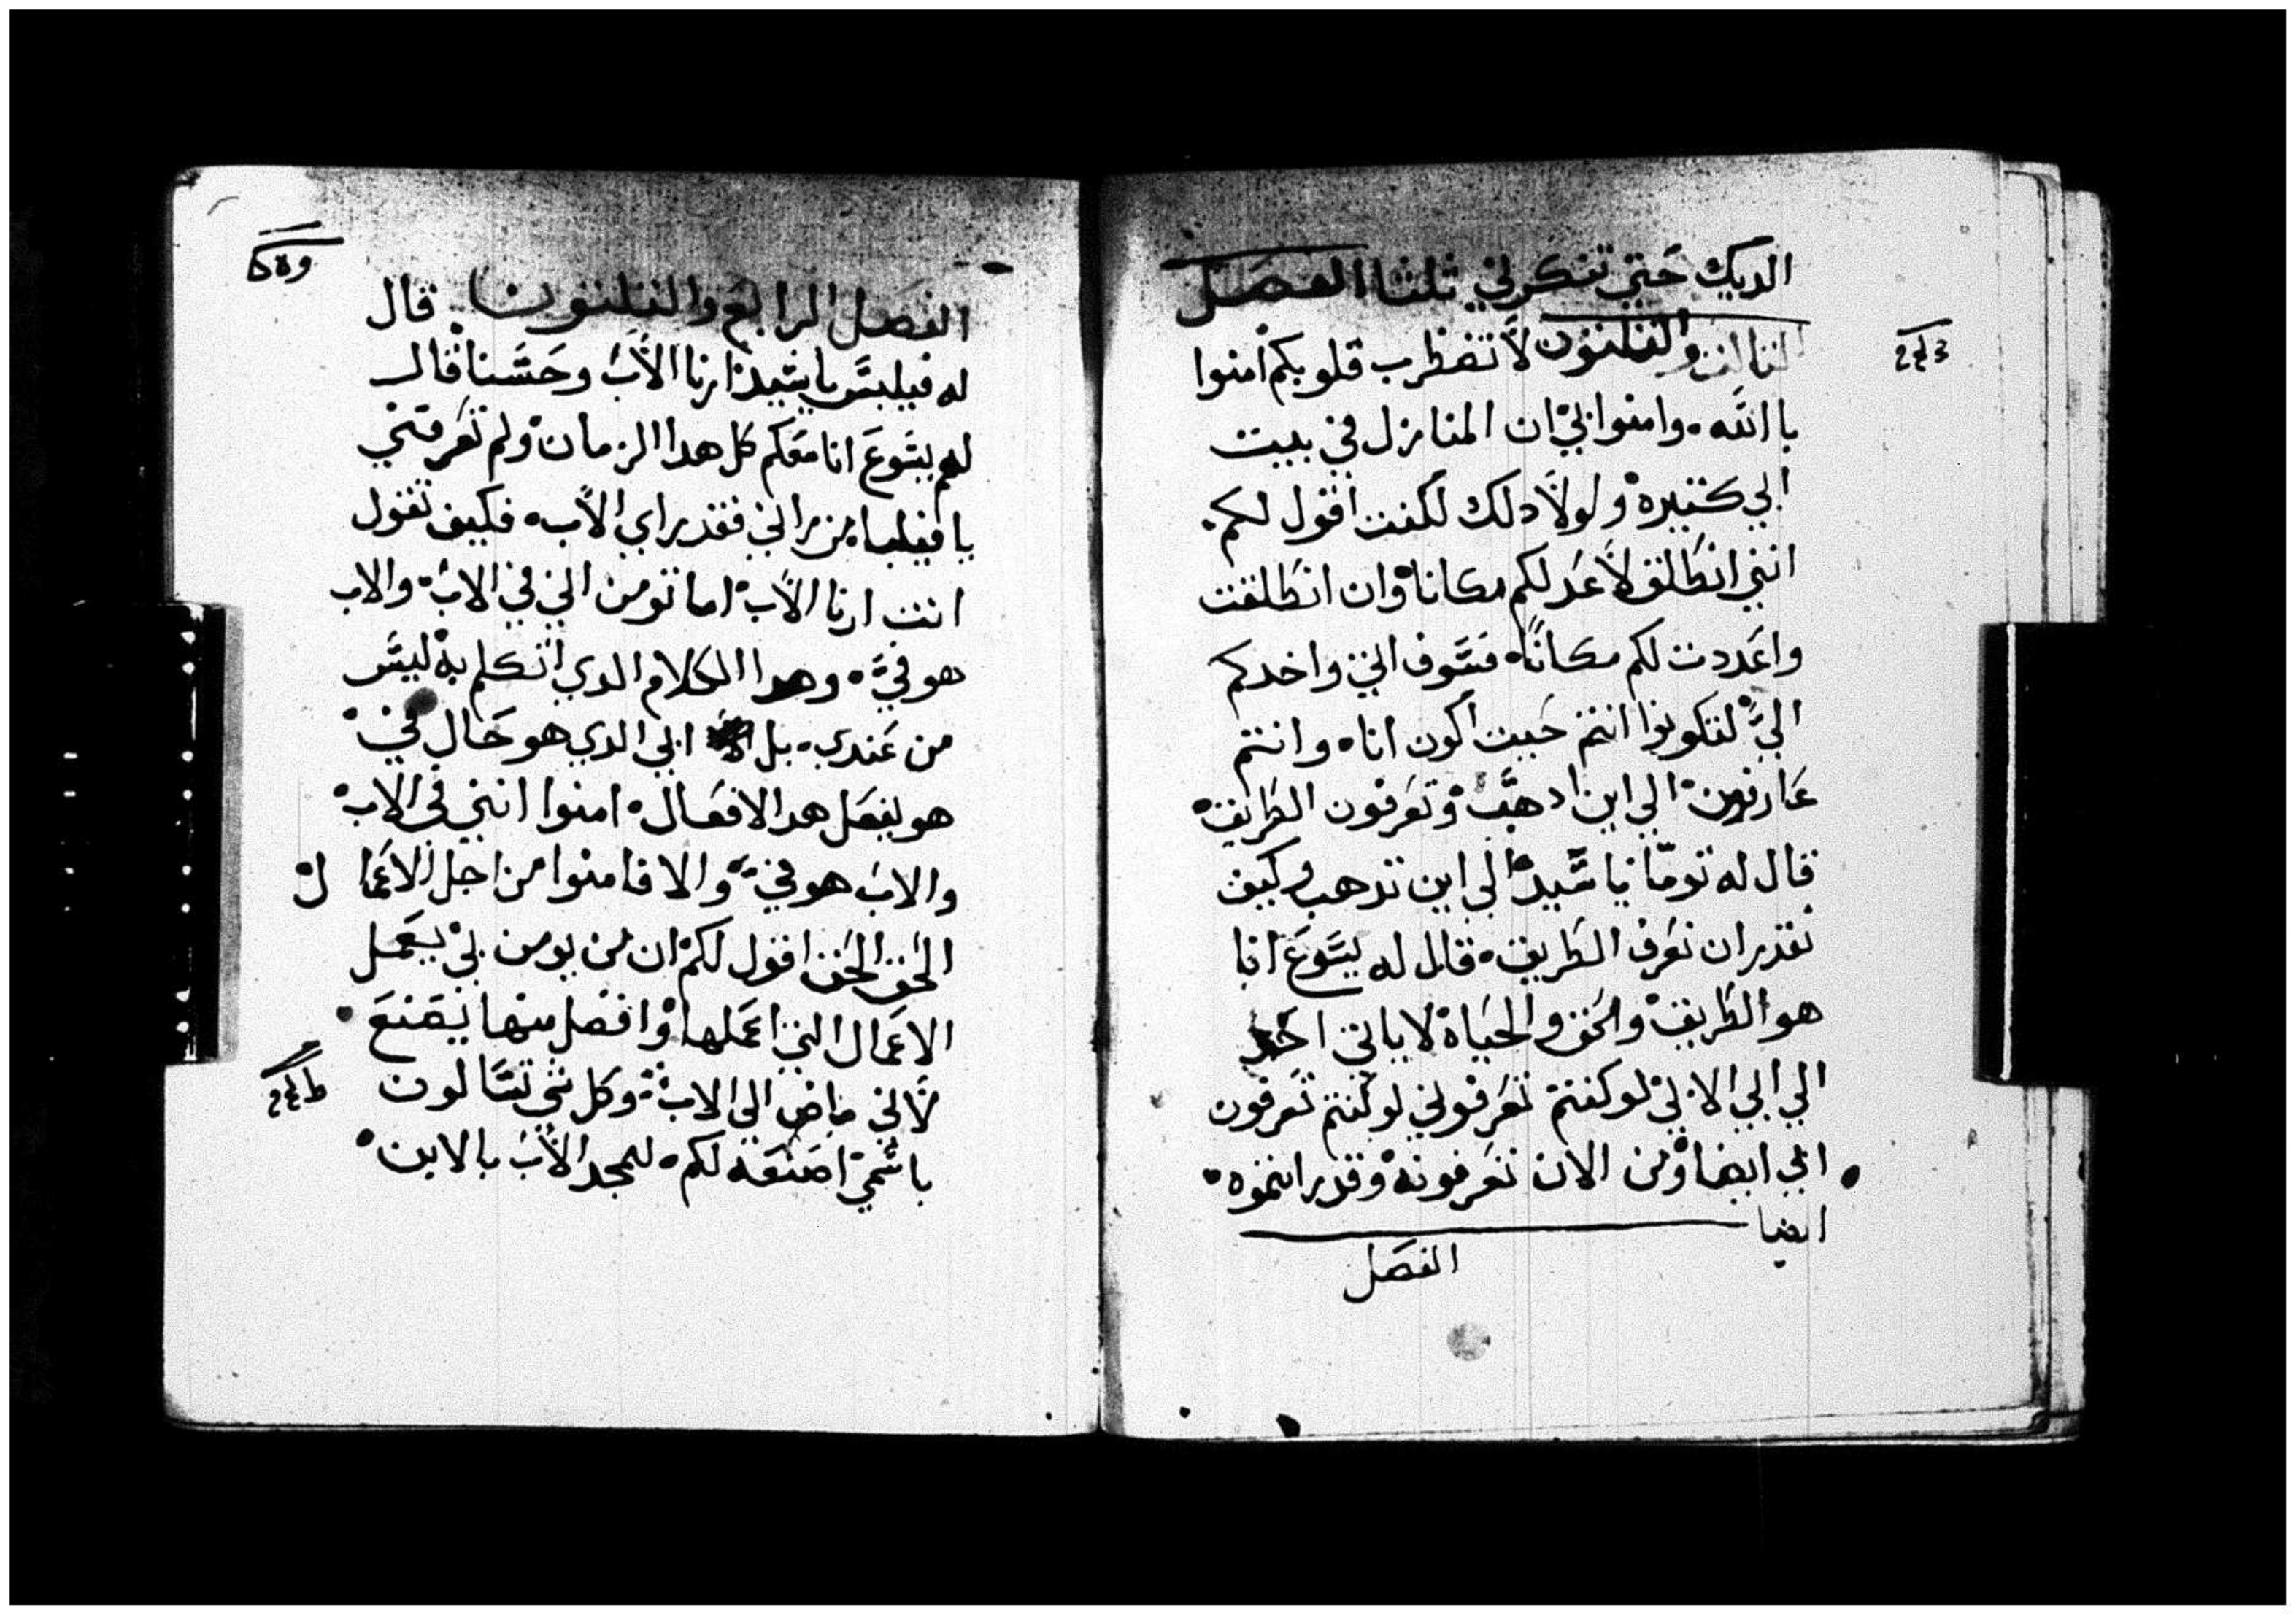 الديك حتي تنكرني ثلثا الفصل
الثالث والثلثون لا تضطرب قلوبكم امنوا
بالله. وامنوا بي ان المنازل في بيت
ابي كثيره ولولا دلك لكنت اقول لكم.
انني انطلق لاعد لكم مكانا وان انطلقت
واعددت لكم مكانًا فسوف اتي واخدكم
اليّ لتكونوا انتم حيث اكون انا. وانتم
عارفون الي اين ادهب وتعرفون الطريق
قال له توما يا سيد الي اين تدهب وكيف
نقدر ان نعرف الطريق. قال له يسوع انا
هو الطريق والحق والحياه لا ياتي احد
الي ابي الا بي لو كنتم تعرفوني لو كنتم تعرفون
ابي ايضا ومن الان تعرفونه وقد رايتموه.
ايضا
الفصل
الفصل الرابع والثلثون قال
له فيلبس يا سيد ارنا الاب وحسبنا قال
لهم يسوع انا معكم كل هدا الزمان ولم تعرفني
يا فيلبا من راني فقد راي الاب. فكيف تقول
انت ارنا الاب اما تومن اني في الاب والاب
هو فيّ. وهدا الكلام الدي اتكلم به ليس
من عندي. بل ابي الدي هو حال فيّ
هو يفعل هدا الافعال. امنوا انني في الاب
والاب هو فيّ والا فامنوا من اجل الاعمال
الحق الحق اقول لكم ان من يومن بي يعمل
الاعمال التي اعملها وافضل منها يصنع.
لاني ماض الي الاب وكل شي تسالون
باسمي اصنعه لكم. ليمجد الاب بالابن